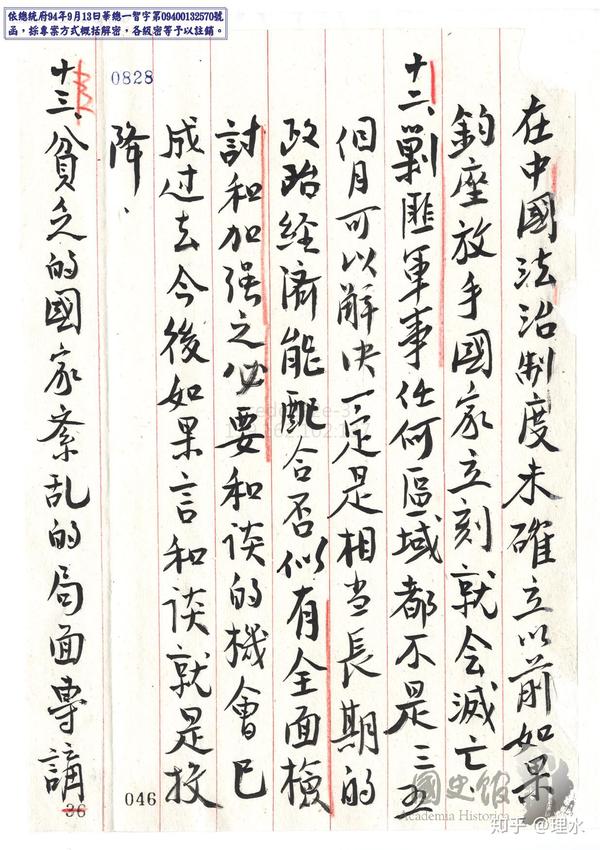 依總統府94年9月13日華總一智字第09400132570號
函，採專案方式概括解密，各級密等予以註銷。
在中國法治制度未確立以前如果
鈞座放手國家立刻就会滅亡、
十二、剿匪軍事任何區域都不是三五
個月可以解决一定是相当長期的
政治経濟能配合否似有全面檢
討和加强之必要和谈的機會已
成过去今後如果言和谈就是投
降、
0828
046
十三、貧乏的國家紊乱的局面專
36
國史館
Academia Historica
知乎 @理水